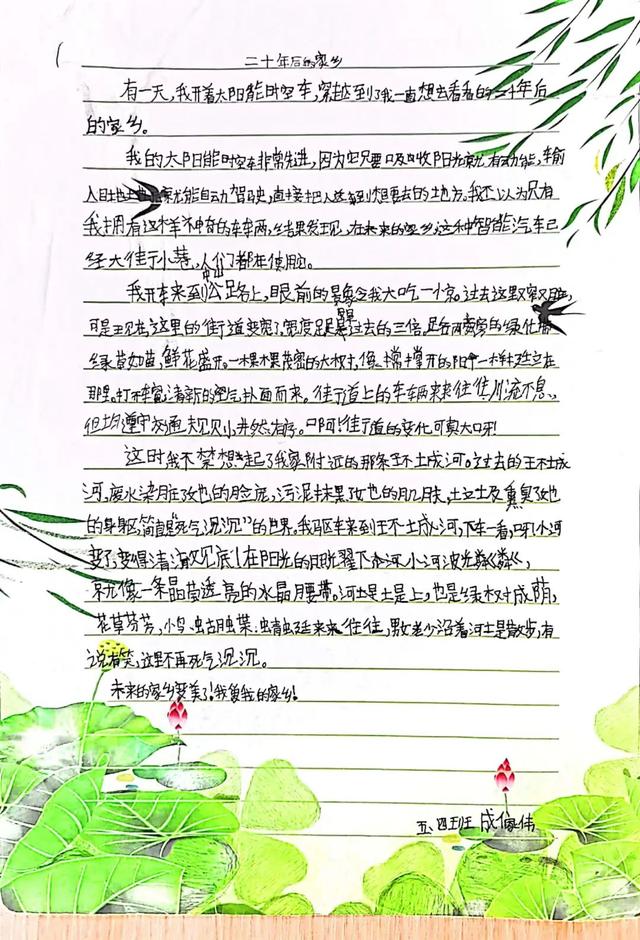 二十年后的家乡
有一天,我开着太阳能时空车,穿越到了我一直想去看看的二十年后
的家乡。
我的太阳能时空车非常先进,因为它只要吸收阳光就有动能,输
入目地就能自动驾驶,直接把人送到想要去的地方。我本以为只有
我拥有这样神奇的车辆,结果发现,在未来的家乡,这种智能汽车已
经大街小巷,人们都在使用。
我开车来到公路上,眼前的景象令我大吃一惊。过去这里又窄又脏,
可是现在这里的街道变宽了,宽度足足是过去的三倍,
绿草如茵,鲜花盛开。一棵棵茂密的大树,像一把撑开的阳伞一样矗立在
那里。打开车窗清新的空气扑面而来。街道上的车辆来来往往川流不息,
但均遵守交通规则,井然有序。啊!街道的变化可真大呀!
这时我不禁想起了我家附近的那条环城河。过去的环城
河,废水染脏了她的脸庞,污泥抹黑了她的肌肤,垃圾熏臭了她
的身躯,简直是“死气沉沉”的世界。我驱车来到环城河,下车一看,呀!小河
变了,变得清澈见底!在阳光的照耀下小河波光粼粼,
就像一条晶莹透亮的水晶腰带。河堤上,也是绿树成荫,
花草芬芳,小鸟、蝴蝶、蜻蜓来来往往,男女老少沿着河堤散步,有
说有笑,这里不再死气沉沉。
未来的家乡变美了!我爱我的家乡!
五、四班 成家伟